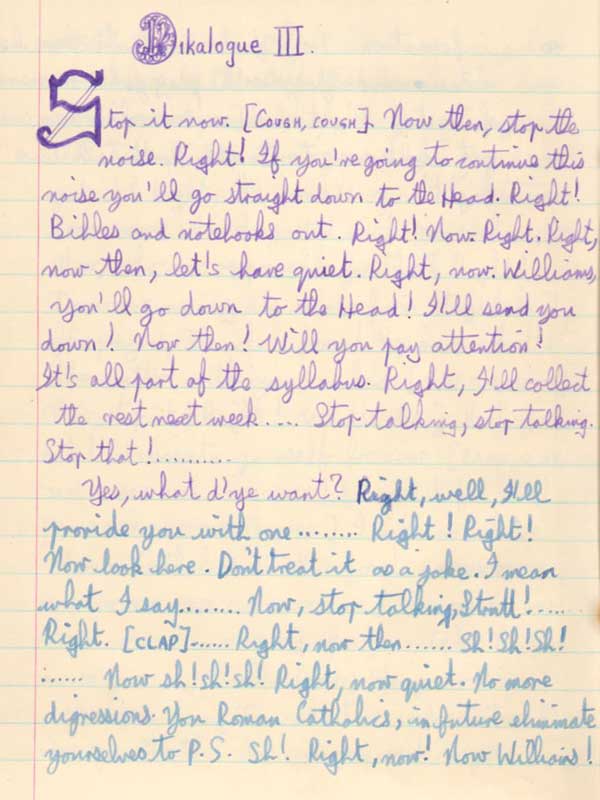 Dikalogue III.
Stop it now. [COUGH, COUGH]. Now then, stop the
noise. Right! If you're going to continue this
noise you'll go straight down to the Head. Right!
Bibles and notebooks out. Right! Now. Right. Right,
now then, let's have quiet. Right, now. Williams,
you'll go down to the Head! I'll send you
down! Now then! Will you pay attention!
It's all part of the syllabus. Right, I'll collect
the rest next week.... Stop talking, stop talking.
Stop that!..........
Yes, what d'ye want? Right, well, I'll
provide you with one ........ Right! Right!
Now look here. Don't treat it as a joke. I mean
what I say........ Now, stop talking, Strutt!.....
Right. [CLAP]...... Right, now then...... Sh! Sh! Sh!
...... Now sh! sh! sh! Right, now quiet. No more
digressions. You Roman Catholics, in future eliminate
yourselves to P.S. Sh! Right, now! Now Williams!